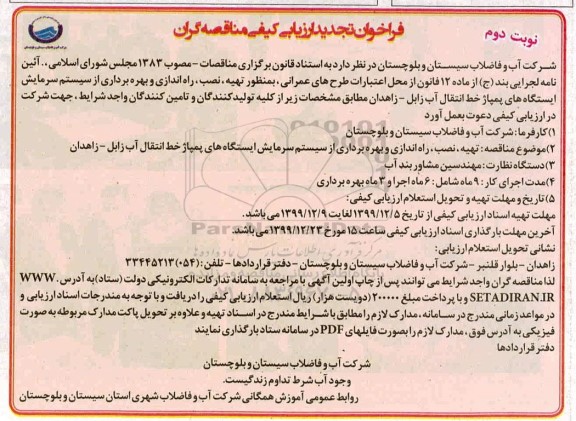 نوبت دوم
فراخوان تجدید ارزیابی کیفی مناقصه گران
شرکت آب و فاضلاب سیستان و بلوچستان در نظر دارد به استناد قانون برگزاری مناقصات - مصوب ۱۳۸۳ مجلس شورای اسلامی، . آئین
نامه اجرایی بند (ج) از ماده ۱۲ قانون از محل اعتبارات طرح های عمرانی، بمنظور تهیه، نصب، راه اندازی و بهره برداری از سیستم سرمایش
ایستگاه های پمپاژ خط انتقال آب زابل - زاهدان مطابق مشخصات زیر از کلیه تولیدکنندگان و تامین کنندگان واجد شرایط، جهت شرکت
در ارزیابی کیفی دعوت بعمل آورد
۱) کارفرما: شرکت آب و فاضلاب سیستان و بلوچستان
۲) موضوع مناقصه: تهیه، نصب، راه اندازی و بهره برداری از سیستم سرمایش ایستگاه های پمپاژ خط انتقال آب زابل - زاهدان
۳) دستگاه نظارت: مهندسین مشاور بند آب
۴) مدت اجرای کار: ۹ ماه شامل: ۶ ماه اجرا و ۳ ماه بهره برداری
۵) تاریخ و مهلت تهیه و تحویل استعلام ارزیابی کیفی:
مهلت تهیه اسناد ارزیابی کیفی از تاریخ ۱۳۹۹/۱۲/۵ لغایت ۱۳۹۹/۱۲/۹ می باشد.
آخرین مهلت بارگذاری اسناد ارزیابی کیفی ساعت ۱۵ مورخ ۱۳۹۹/۱۲/۲۳ می باشد.
نشانی تحویل استعلام ارزیابی:
زاهدان - بلوار قلنبر - شرکت آب و فاضلاب سیستان و بلوچستان - دفتر قراردادها - تلفن: (۰۵۴) ۳۳۴۴۵۲۱۳
لذا مناقصه گران واجد شرایط می توانند پس از چاپ اولین آگهی با مراجعه به سامانه تدارکات الکترونیکی دولت (ستاد) به آدرس . WWW
SETADIRAN.IR و با پرداخت مبلغ ۲۰۰۰۰۰ (دویست هزار) ریال استعلام ارزیابی کیفی را دریافت و با توجه به مندرجات اسناد ارزیابی و
در مواعد زمانی مندرج در سامانه، مدارک لازم را مطابق با شرایط مندرج در اسناد تهیه و علاوه بر تحویل پاکت مدارک مربوطه به صورت
فیزیکی به آدرس فوق، مدارک لازم را بصورت فایلهای PDF در سامانه ستاد بارگذاری نمایند
دفتر قراردادها
شرکت آب و فاضلاب سیستان و بلوچستان
وجود آب شرط تداوم زندگیست.
روابط عمومی آموزش همگانی شرکت آب و فاضلاب شهری استان سیستان و بلوچستان